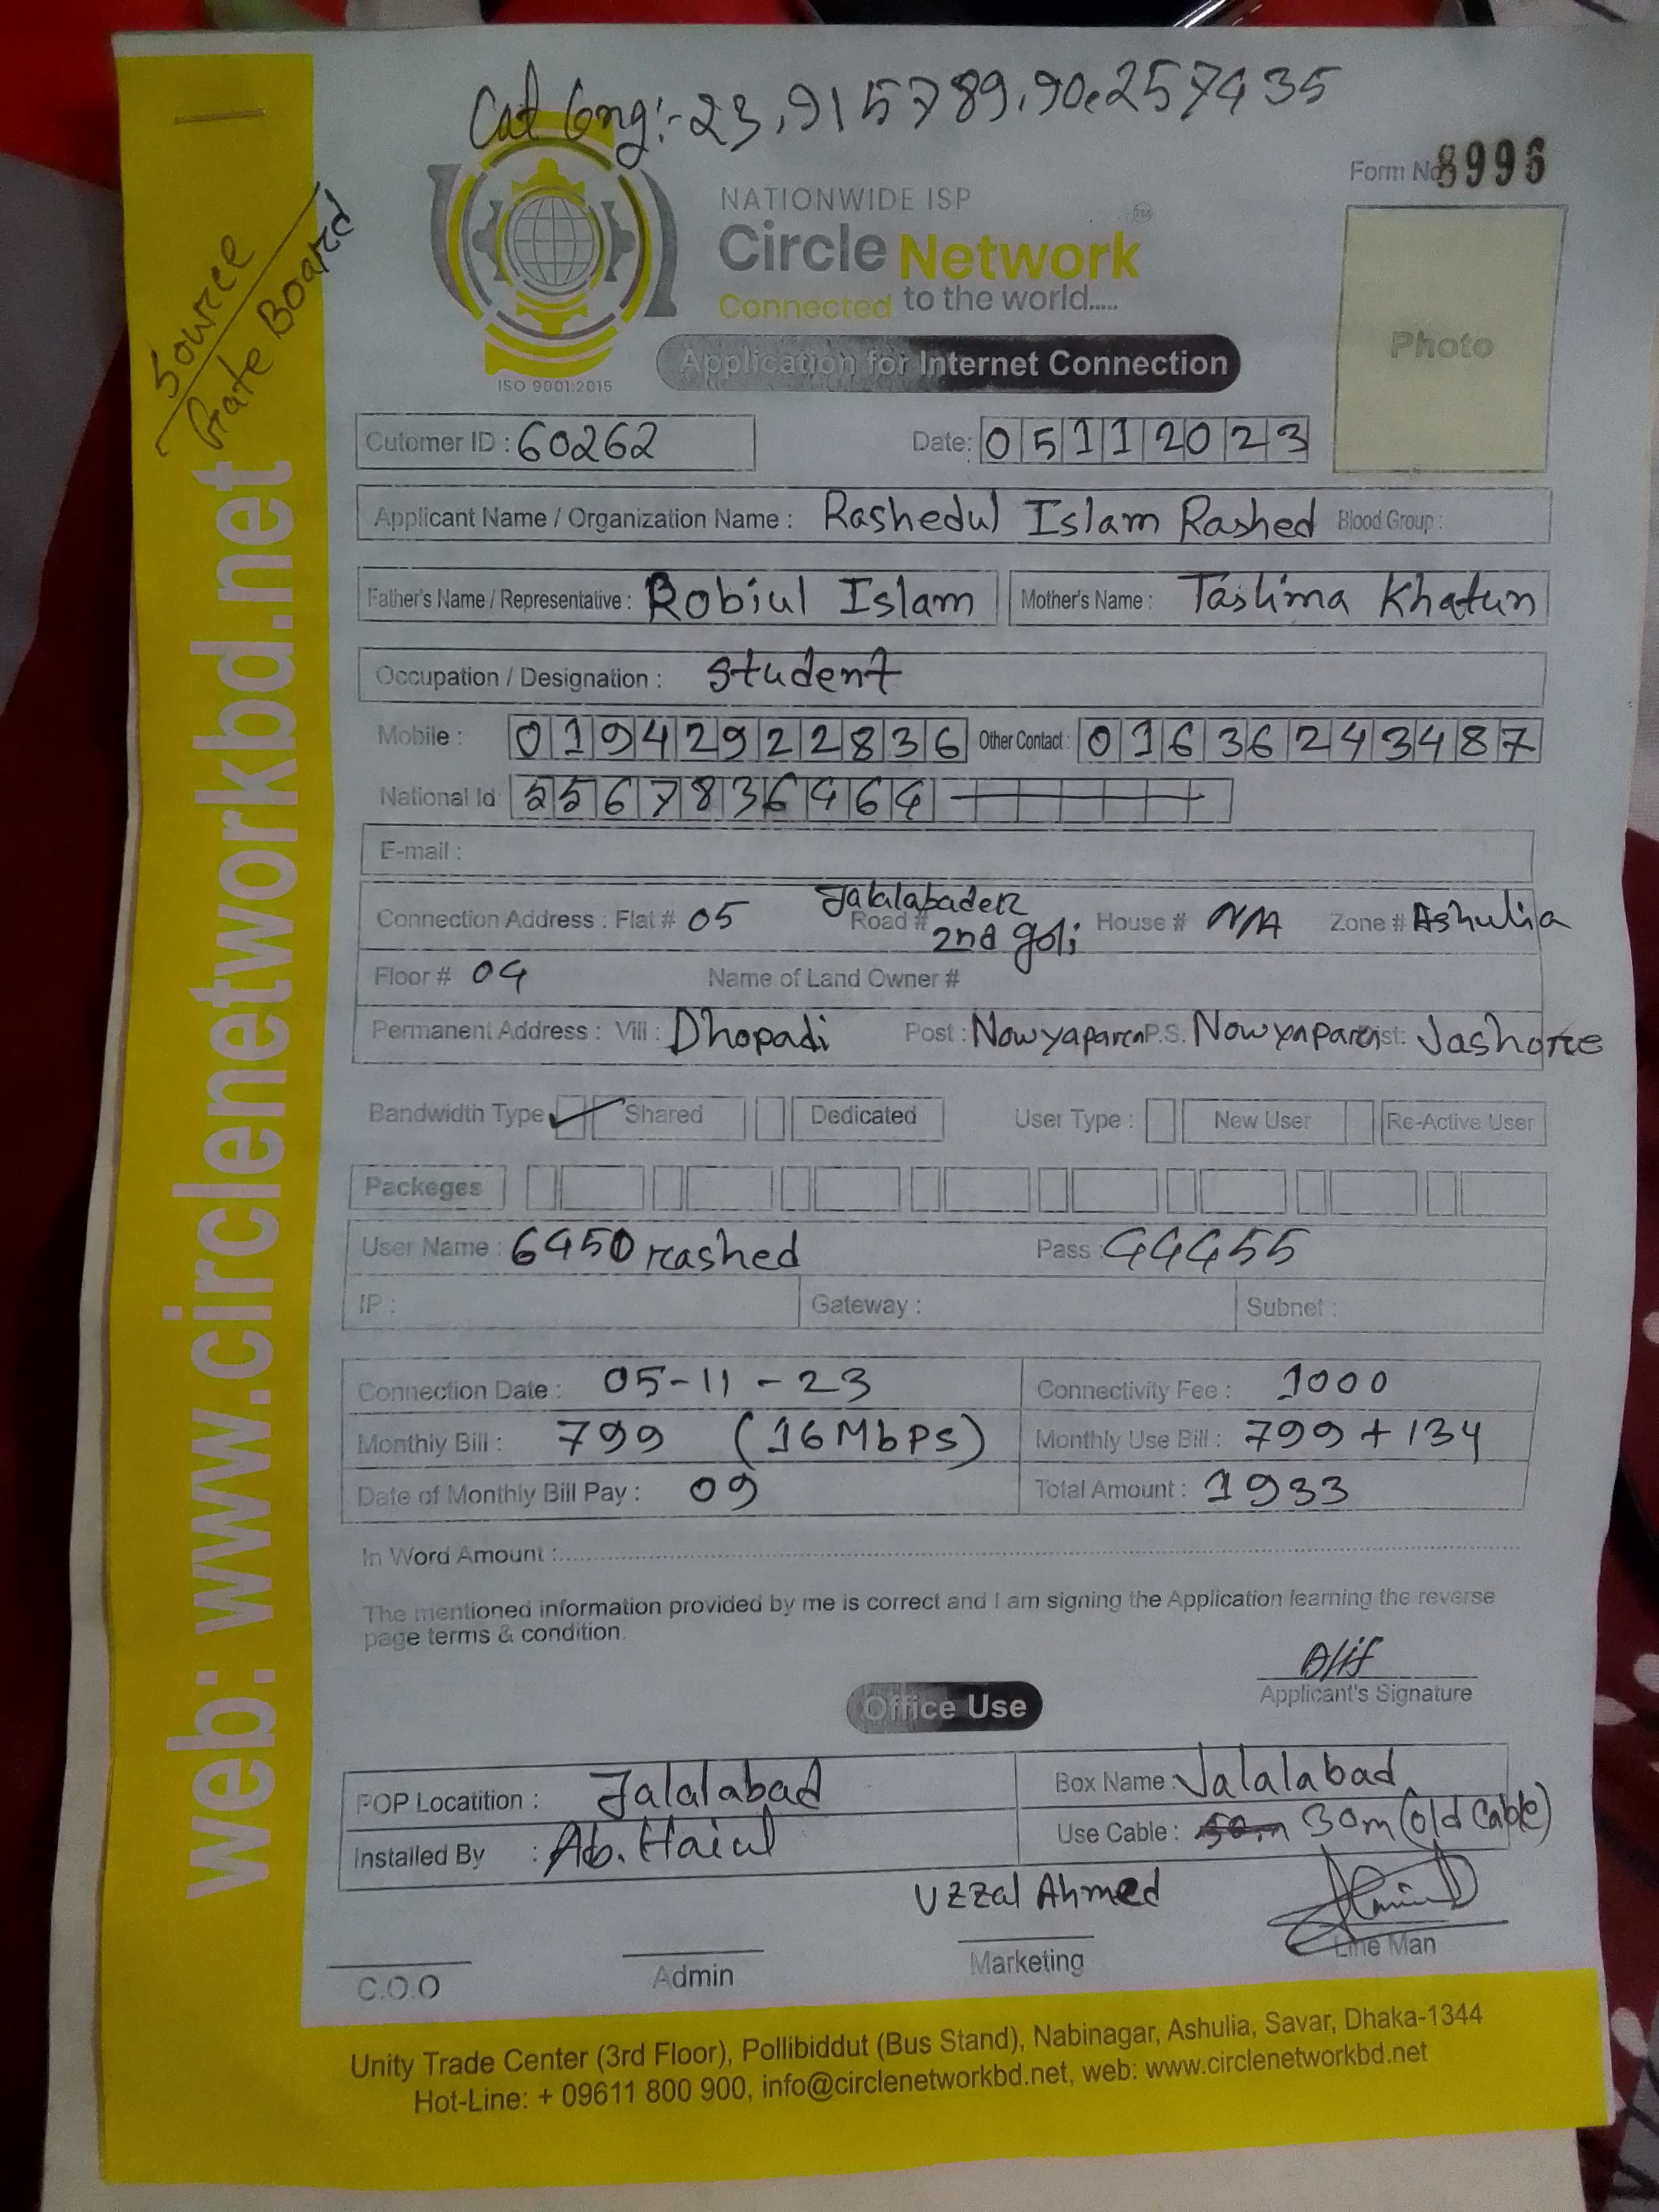 Cat long:- 23.915789,90.257435
Form No 8996
Source
Gate Board
NATIONWIDE ISP
Circle Network
Connected to the world.....
ISO 9001:2015
Application for Internet Connection
Photo
Cutomer ID : 60262 Date: 05112023
Applicant Name / Organization Name : Rashedul Islam Rashed Blood Group :
Father's Name / Representative : Robiul Islam Mother's Name : Taslima Khatun
Occupation / Designation : student
Mobile : 01942922836 Other Contact : 01636243487
National Id 5567836464
E-mail :
Connection Address : Flat # 05 Road # Jalalabader 2nd goli House # N/A Zone # Ashulia
Floor # 04 Name of Land Owner #
Permanent Address : Vill : Dhopadi Post : Nowyapara P.S. Nowyapara Dist: Jashore
Bandwidth Type Shared Dedicated User Type : New User Re-Active User
Packeges
User Name : 6450rashed Pass : 44455
IP : Gateway : Subnet :
Connection Date : 05-11-23 Connectivity Fee : 1000
Monthly Bill : 799 (16Mbps) Monthly Use Bill : 799+134
Date of Monthly Bill Pay : 09 Total Amount : 1933
In Word Amount :
The mentioned information provided by me is correct and I am signing the Application learning the reverse
page terms & condition.
Alif
Applicant's Signature
Office Use
POP Locatition : Jalalabad Box Name : Jalalabad
Installed By : Ab. Haiul Use Cable : 30m (old Cable)
Uzzal Ahmed
C.O.O Admin Marketing Line Man
Unity Trade Center (3rd Floor), Pollibiddut (Bus Stand), Nabinagar, Ashulia, Savar, Dhaka-1344
Hot-Line: + 09611 800 900, info@circlenetworkbd.net, web: www.circlenetworkbd.net
web: www.circlenetworkbd.net